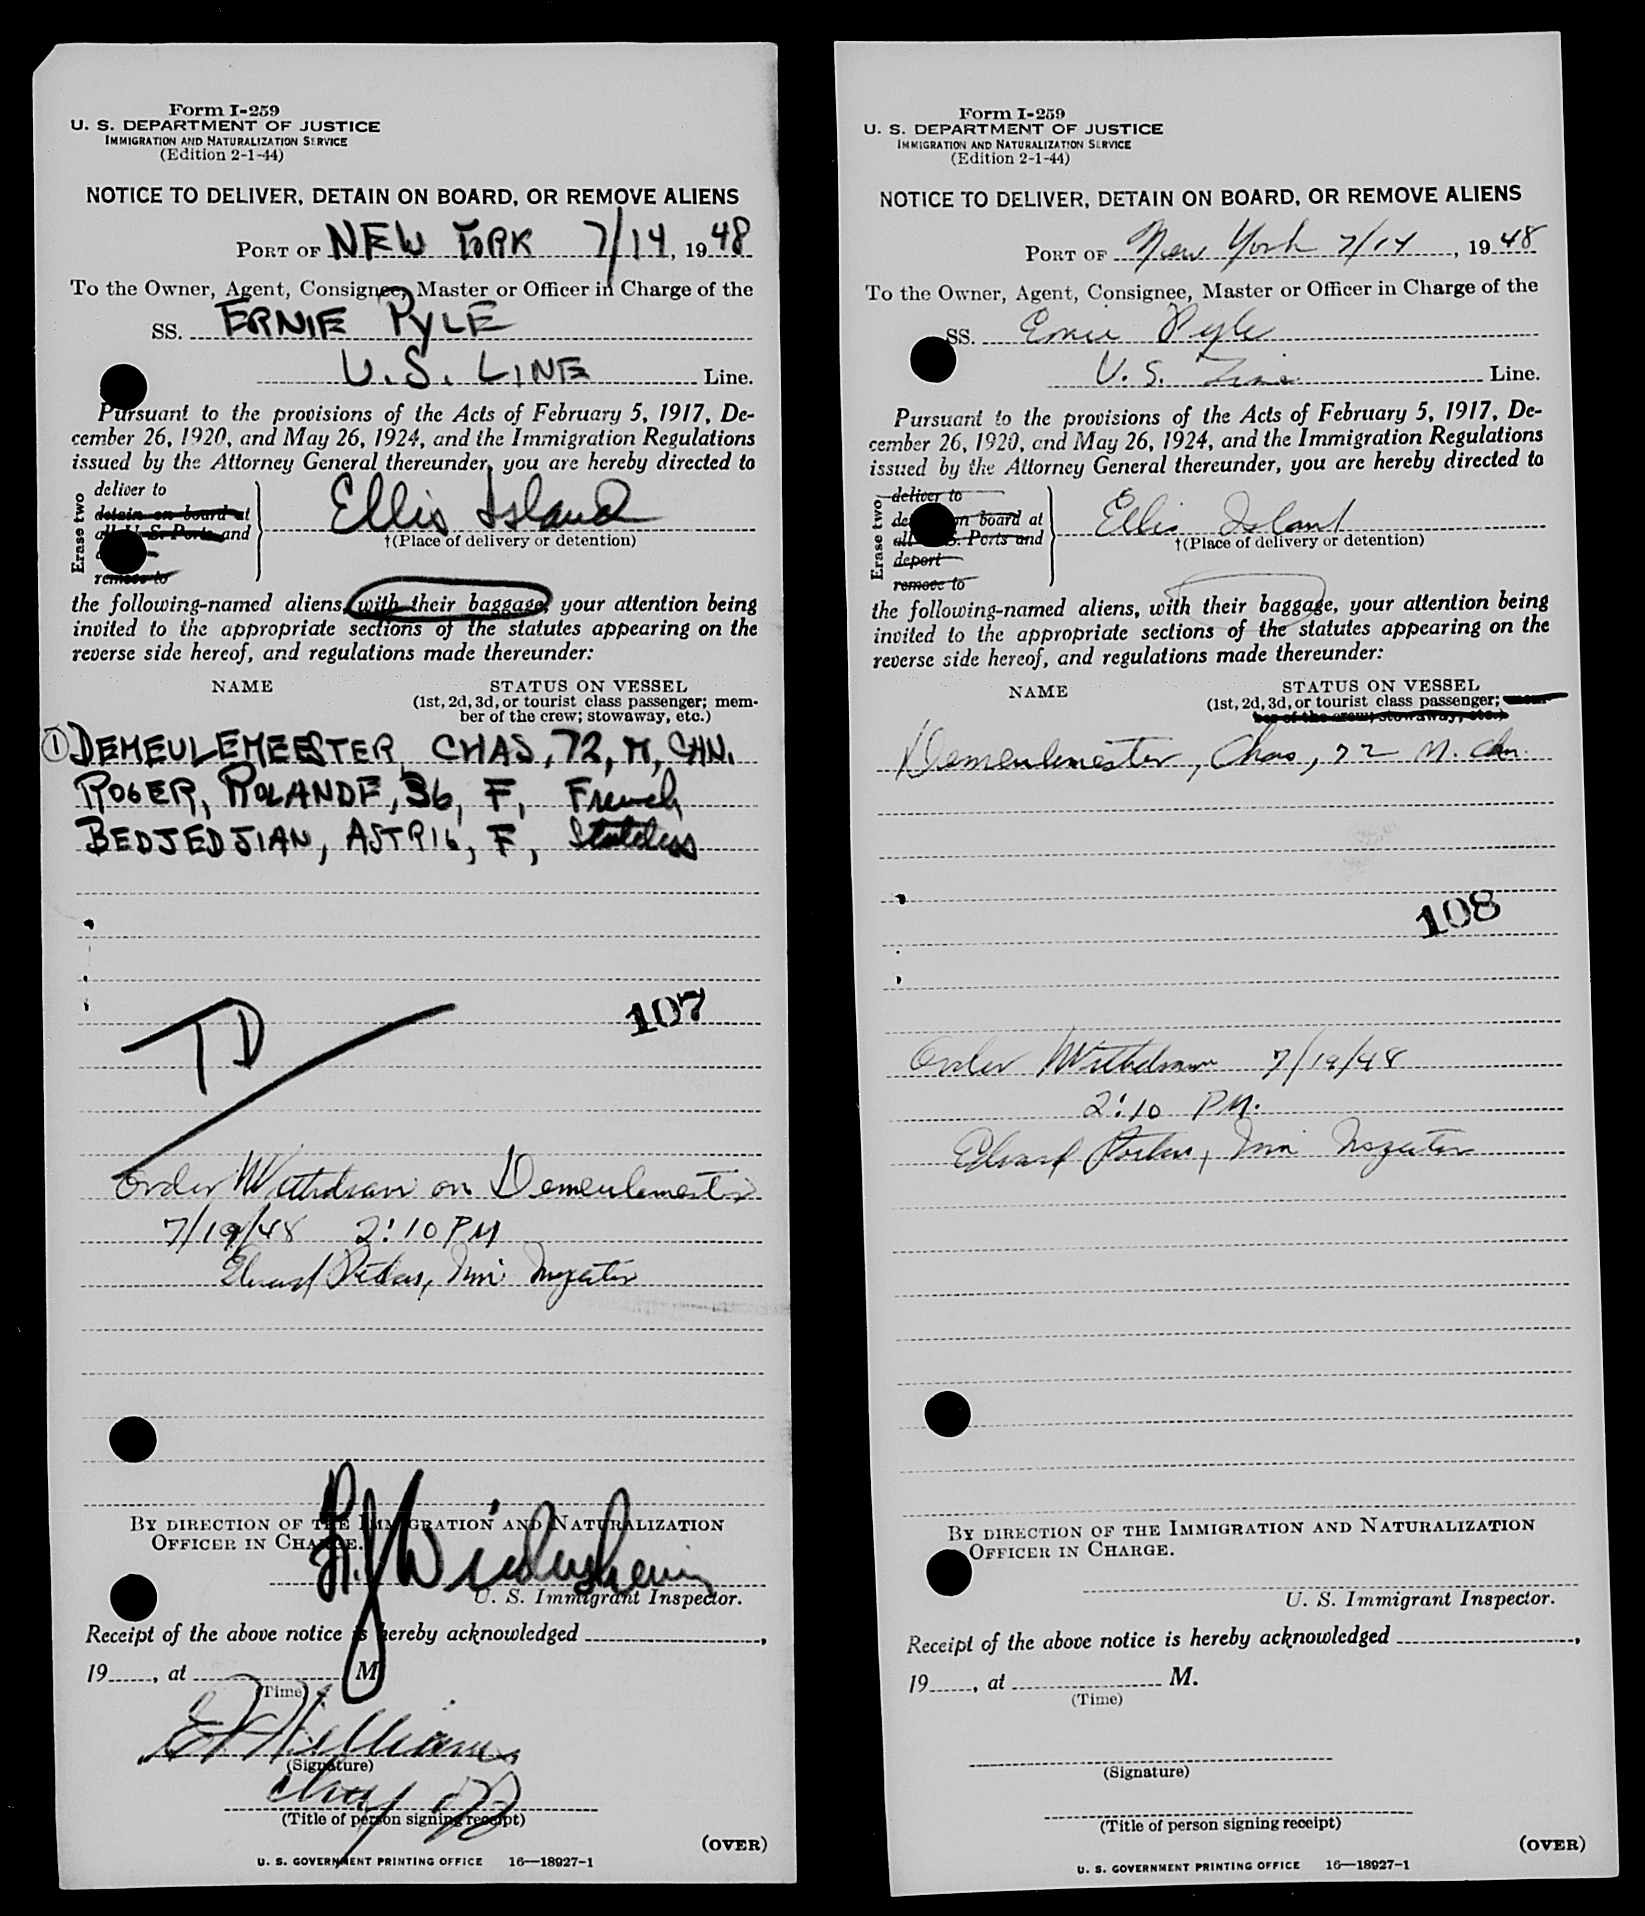 Form I-259
U. S. DEPARTMENT OF JUSTICE
IMMIGRATION AND NATURALIZATION SERVICE
(Edition 2-1-44)
NOTICE TO DELIVER, DETAIN ON BOARD, OR REMOVE ALIENS
PORT OF NEW YORK 7/14, 1948
To the Owner, Agent, Consignee, Master or Officer in Charge of the
SS. ERNIE PYLE
U.S. LINE Line.
Pursuant to the provisions of the Acts of February 5, 1917, De-
cember 26, 1920, and May 26, 1924, and the Immigration Regulations
issued by the Attorney General thereunder, you are hereby directed to
Erase two
deliver to
detain on board at
all U. S. Ports and
remove to
Ellis Island
†(Place of delivery or detention)
the following-named aliens, with their baggage, your attention being
invited to the appropriate sections of the statutes appearing on the
reverse side hereof, and regulations made thereunder:
NAME STATUS ON VESSEL
(1st, 2d, 3d, or tourist class passenger; mem-
ber of the crew; stowaway, etc.)
① DEMEULEMEESTER, CHAS, 72, M, CHN.
ROGER, ROLANDE, 36, F, French
BEDJEDJIAN, ASTRIG, F, Stateless
107
TD
Order Withdrawn on Demeulemester
7/19/48 2:10 PM
Edward Imm. Inspector
BY DIRECTION OF THE IMMIGRATION AND NATURALIZATION
OFFICER IN CHARGE.
U. S. Immigrant Inspector.
Receipt of the above notice is hereby acknowledged
19, at M
(Time)
Williams
(Signature)
(Title of person signing receipt)
(OVER)
U. S. GOVERNMENT PRINTING OFFICE 16—18927-1
Form I-259
U. S. DEPARTMENT OF JUSTICE
IMMIGRATION AND NATURALIZATION SERVICE
(Edition 2-1-44)
NOTICE TO DELIVER, DETAIN ON BOARD, OR REMOVE ALIENS
PORT OF New York 7/14, 1948
To the Owner, Agent, Consignee, Master or Officer in Charge of the
SS. Ernie Pyle
U. S. Line Line.
Pursuant to the provisions of the Acts of February 5, 1917, De-
cember 26, 1920, and May 26, 1924, and the Immigration Regulations
issued by the Attorney General thereunder, you are hereby directed to
Erase two
deliver to
detain on board at
all U. S. Ports and
deport
remove to
Ellis Island
†(Place of delivery or detention)
the following-named aliens, with their baggage, your attention being
invited to the appropriate sections of the statutes appearing on the
reverse side hereof, and regulations made thereunder:
NAME STATUS ON VESSEL
(1st, 2d, 3d, or tourist class passenger; mem-
ber of the crew; stowaway, etc.)
Demeulemester, Chas, 72 M. Chn.
108
Order Withdrawn 7/19/48
2:10 PM.
Edward Imm Inspector
BY DIRECTION OF THE IMMIGRATION AND NATURALIZATION
OFFICER IN CHARGE.
U. S. Immigrant Inspector.
Receipt of the above notice is hereby acknowledged ,
19, at M.
(Time)
(Signature)
(Title of person signing receipt)
(OVER)
U. S. GOVERNMENT PRINTING OFFICE 16—18927-1